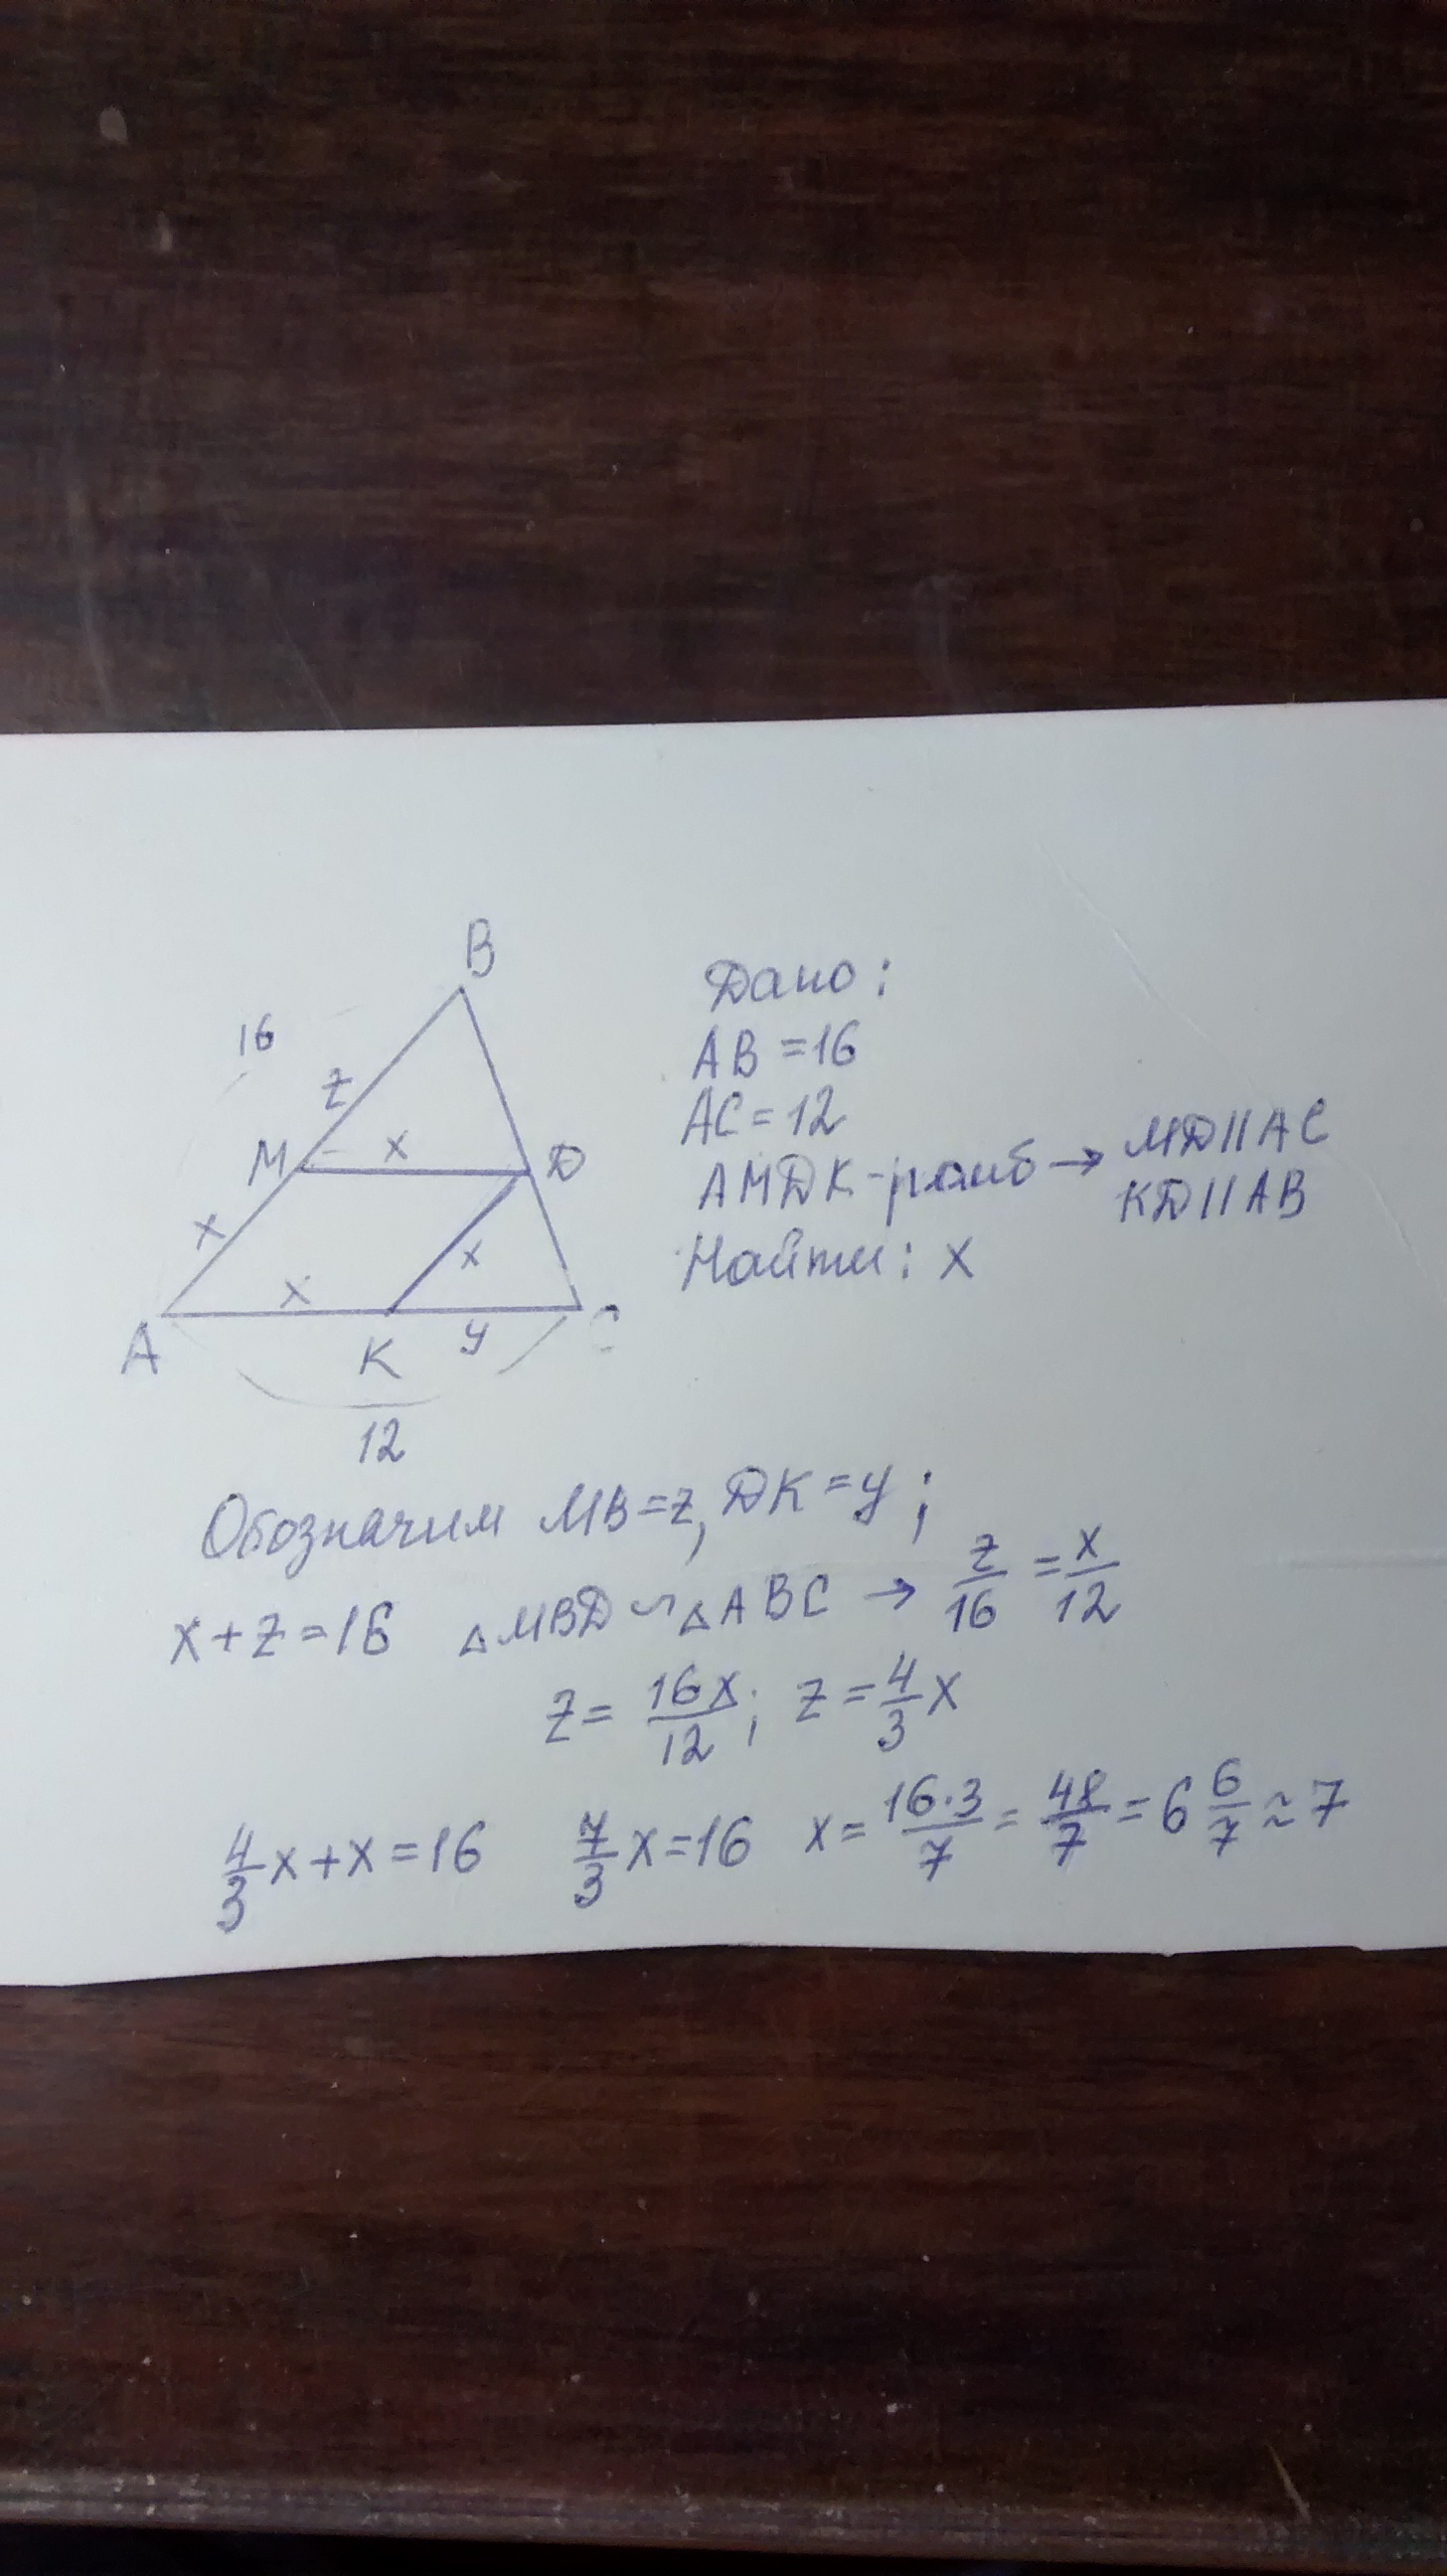 B
16
z
M x D
x x
x
A K y C
12
Дано:
AB = 16
AC = 12
AMDK - ромб → MD || AC
KD || AB
Найти: x
Обозначим MB = z, DK = y;
x + z = 16 △MBD ∾ △ABC → z/16 = x/12
z = 16x/12; z = 4/3 x
4/3 x + x = 16 7/3 x = 16 x = 16·3/7 = 48/7 = 6 6/7 ≈ 7